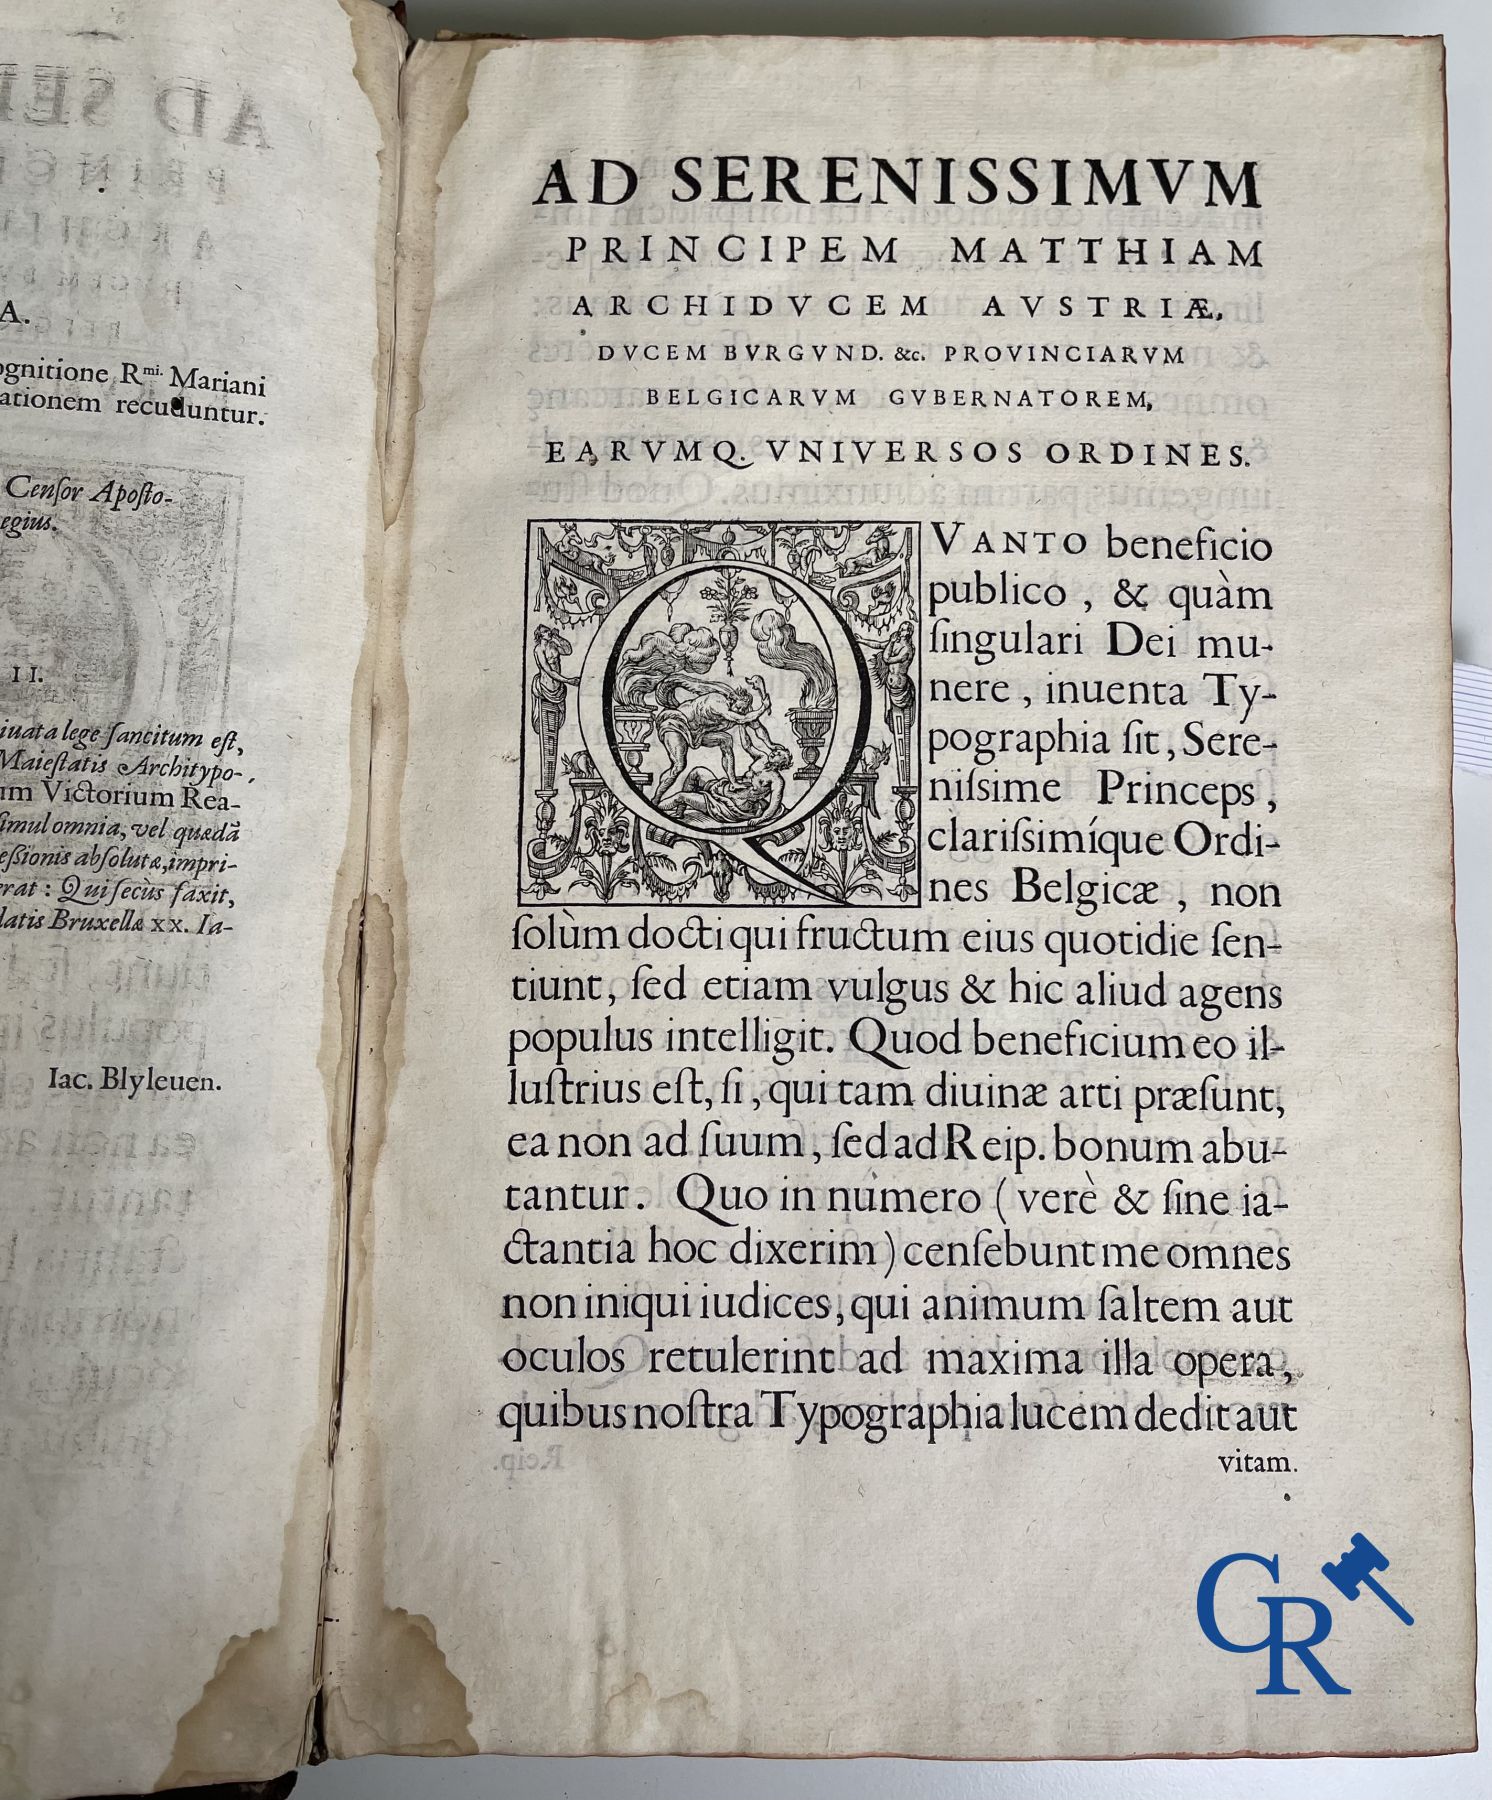 A.
ognitione R^mi. Mariani
ationem recuduntur.
Cenſor Apoſto-
egius.
II.
iuata lege ſancitum eſt,
Maieſtatis Architypo-
um Victorium Rea-
ſimul omnia, vel quædā
eſsionis abſolutæ, impri-
erat: Qui ſecùs faxit,
datis Bruxellæ xx. Ia-
Iac. Blyleuen.
AD SERENISSIMVM
PRINCIPEM MATTHIAM
ARCHIDVCEM AVSTRIÆ,
DVCEM BVRGVND. &c. PROVINCIARVM
BELGICARVM GVBERNATOREM,
EARVMQ. VNIVERSOS ORDINES.
QVANTO beneficio
publico, & quàm
ſingulari Dei mu-
nere, inuenta Ty-
pographia ſit, Sere-
niſsime Princeps,
clariſsimíque Ordi-
nes Belgicæ, non
ſolùm docti qui fructum eius quotidie ſen-
tiunt, ſed etiam vulgus & hic aliud agens
populus intelligit. Quod beneficium eo il-
luſtrius eſt, ſi, qui tam diuinæ arti præſunt,
ea non ad ſuum, ſed ad Reip. bonum abu-
tantur. Quo in numero (verè & ſine ia-
ctantia hoc dixerim) cenſebunt me omnes
non iniqui iudices, qui animum ſaltem aut
oculos retulerint ad maxima illa opera,
quibus noſtra Typographia lucem dedit aut
vitam.
CR